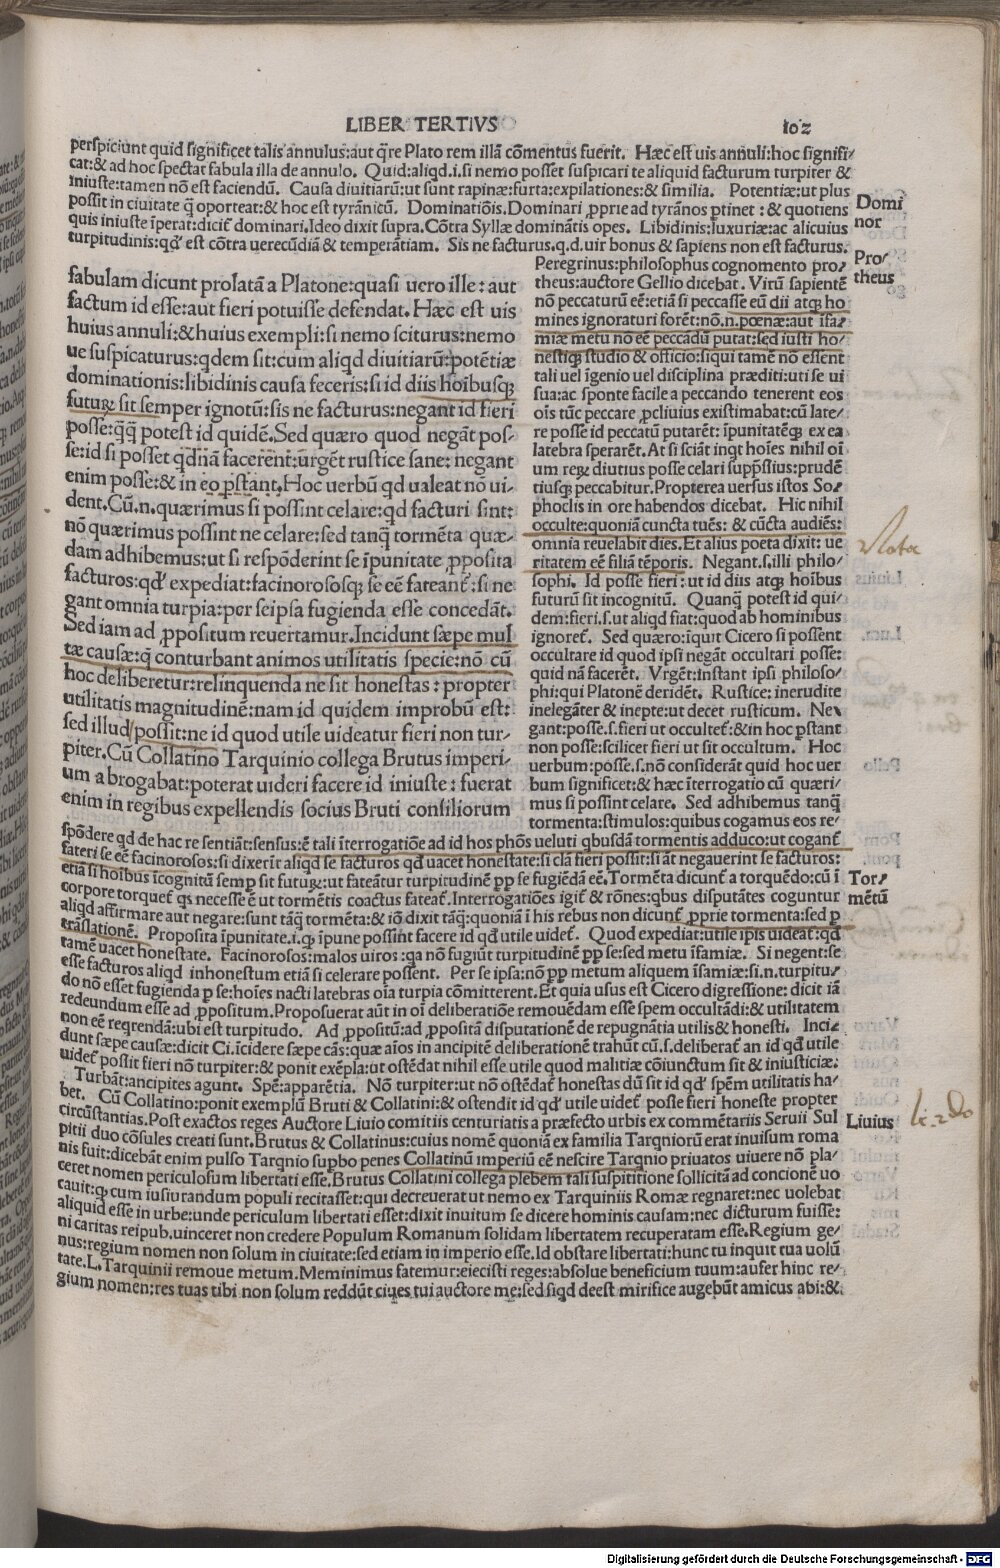 LIBER TERTIVS
102
perspiciunt quid significet talis annulus:aut q̃re Plato rem illã cõmentus fuerit. Hæc est uis annuli:hoc signifi/
cat:& ad hoc spectat fabula illa de annulo. Quid:aliqd.i.si nemo posset suspicari te aliquid facturum turpiter &
iniuste:tamen nõ est faciendũ. Causa diuitiarũ:ut sunt rapinæ:furta:expilationes:& similia. Potentiæ:ut plus
possit in ciuitate q̃ oporteat:& hoc est tyrãnicũ. Dominatiõis.Dominari ꝓprie ad tyrãnos ptinet : & quotiens
quis iniuste ĩperat:dicit̃ dominari.Ideo dixit supra.Cõtra Syllæ dominãtis opes. Libidinis:luxuriæ:ac alicuius
turpitudinis:qd' est cõtra uerecũdiã & temperãtiam. Sis ne facturus.q.d.uir bonus & sapiens non est facturus.
Domi
nor
fabulam dicunt prolatã a Platone:quasi uero ille : aut
factum id esse:aut fieri potuisse defendat.Hæc est uis
huius annuli:& huius exempli:si nemo sciturus:nemo
ue suspicaturus:qdem sit:cum aliqd diuitiarũ:potẽtiæ
dominationis:libidinis causa feceris:si id diis hoĩbusqꝫ
futuꝝ sit semper ignotũ:sis ne facturus:negant id fieri
posse:q̃q̃ potest id quidẽ.Sed quæro quod negãt pos-
se:id si posset qdnã facerent:urgẽt rustice sane: negant
enim posse:& in eo pstãnt.Hoc uerbũ qd ualeat nõ ui-
dent.Cũ.n.quærimus si possint celare:qd facturi sint:
nõ quærimus possint ne celare:sed tanq̃ tormẽta quæ-
dam adhibemus:ut si respõderint se ĩpunitate ꝓposita
facturos:qd' expediat:facinorososqꝫ se eẽ fateant̃:si ne
gant omnia turpia:per seipsa fugienda esse concedãt.
Sed iam ad ꝓpositum reuertamur.Incidunt sæpe mul
tæ causæ:q̃ conturbant animos utilitatis specie:nõ cũ
hoc deliberetur:relinquenda ne sit honestas : propter
utilitatis magnitudinẽ:nam id quidem improbũ est:
sed illud/possit:ne id quod utile uideatur fieri non tur-
piter.Cũ Collatino Tarquinio collega Brutus imperi-
um abrogabat:poterat uideri facere id iniuste : fuerat
enim in regibus expellendis socius Bruti consiliorum
Peregrinus:philosophus cognomento pro/
theus:auctore Gellio dicebat. Virũ sapientẽ
nõ peccaturũ eẽ:etiã si peccasse eũ dii atqꝫ ho
mines ignoraturi forẽt:nõ.n.pœnæ:aut ĩfa/
miæ metu nõ eẽ peccãdũ putat:sed iusti ho/
nestiqꝫ studio & officio:siqui tamẽ nõ essent
tali uel ĩgenio uel disciplina præditi:uti se ui
sua:ac sponte facile a peccando tenerent eos
oĩs tũc peccare ꝓcliuius existimabat:cũ late/
re posse id peccatũ putarẽt: ĩpunitatẽqꝫ ex ea
latebra sperarẽt.At si sciãt inqt hoĩes nihil oĩ
um reꝝ diutius posse celari supp̃ssius:prudẽ
tiusqꝫ peccabitur.Propterea uersus istos So
phoclis in ore habendos dicebat. Hic nihil
occulte:quoniã cuncta tuẽs: & cũcta audiẽs:
omnia reuelabit dies.Et alius poeta dixit: ue
ritatem eẽ filiã tẽporis. Negant.s.illi philo/
sophi. Id posse fieri : ut id diis atqꝫ hoĩbus
futurũ sit incognitũ. Quanq̃ potest id qui/
dem:fieri.s.ut aliqd fiat:quod ab hominibus
ignoret̃. Sed quæro:ĩquit Cicero si possent
occultare id quod ipsi negãt occultari posse:
quid nã facerẽt. Vrgẽt:instant ipsi philoso/
phi:qui Platonẽ deridẽt. Rustice: inerudite
inelegãter & inepte:ut decet rusticum. Ne
gant:posse.s.fieri ut occultet̃:& in hoc pstant
non posse:scilicet fieri ut sit occultum. Hoc
uerbum:posse.s.nõ considerãt quid hoc uer
bum significet:& hæc ĩterrogatio cũ quæri/
mus si possint celare. Sed adhibemus tanq̃
tormenta:stimulos:quibus cogamus eos re/
Pro/
theus
Nota
spõdere qd de hac re sentiãt:sensus:ẽ tali ĩterrogatiõe ad id hos phõs ueluti qbusdã tormentis adduco:ut cogant̃
fateri se eẽ facinorosos:si dixerĩt aliqd se facturos qd uacet honestate:si clã fieri possit:si ãt negauerint se facturos:
etiã si hoĩbus ĩcognitũ semp sit futuꝝ:ut fateãtur turpitudinẽ pp se fugiẽdã eẽ.Tormẽta dicunt̃ a torquẽdo:cũ ĩ
corpore torquet̃ qs necesse ẽ ut tormẽtis coactus fateat̃.Interrogatiões igit̃ & rõnes:qbus disputãtes coguntur
aliqd affirmare aut negare:sunt tãq̃ tormẽta:& iõ dixit tãq̃:quoniã ĩ his rebus non dicunt̃ ꝓprie tormenta:sed p
trãslationẽ. Proposita ĩpunitate.i.qꝫ ĩpune possint facere id qd utile uidet̃. Quod expediat:utile ipis uideat̃:qd
tamẽ uacet honestate. Facinorosos:malos uiros :qa nõ fugiũt turpitudinẽ pp se:sed metu ĩfamiæ. Si negent:se
esse facturos aliqd inhonestum etiã si celerare possent. Per se ipsa:nõ pp metum aliquem ĩfamiæ:si.n.turpitu/
do nõ esset fugienda p se:hoĩes nacti latebras oĩa turpia cõmitterent.Et quia usus est Cicero digressione: dicit iã
redeundum esse ad ꝓpositum.Proposuerat aũt in oĩ deliberatiõe remouẽdam esse spem occultãdi:& utilitatem
non eẽ reqrendã:ubi est turpitudo. Ad ꝓpositũ:ad ꝓpositã disputationẽ de repugnãtia utilis& honesti. Inci/
dunt sæpe causæ:dicit Ci.ĩcidere sæpe cãs:quæ aĩos in ancipitẽ deliberationẽ trahũt cũ.s.deliberat̃ an id qd utile
uidet̃ possit fieri nõ turpiter:& ponit exẽpla:ut ostẽdat nihil esse utile quod malitiæ cõiunctum sit & iniusticiæ.
Turbãt:ancipites agunt. Spẽ:apparẽtia. Nõ turpiter:ut nõ ostẽdat̃ honestas dũ sit id qd' spẽm utilitatis ha/
bet. Cũ Collatino:ponit exemplũ Bruti & Collatini:& ostendit id qd' utile uidet̃ posse fieri honeste propter
circũstantias.Post exactos reges Auctore Liuio comitiis centuriatis a præfecto urbis ex commẽtariis Seruii Sul
pitii duo cõsules creati sunt.Brutus & Collatinus:cuius nomẽ quoniã ex familia Tarqniorũ erat inuisum roma
nis fuit:dicebãt enim pulso Tarqnio supbo penes Collatinũ imperiũ eẽ nescire Tarqnio priuatos uiuere nõ pla/
cere nomen periculosum libertati esse.Brutus Collatini collega plebem tali suspititione sollicitã ad concionẽ uo
cauit:qꝫ cum iusiurandum populi recitasset:qui decreuerat ut nemo ex Tarquiniis Romæ regnaret:nec uolebat
aliquid esse in urbe:unde periculum libertati esset:dixit inuitum se dicere hominis causam:nec dicturum fuisse:
ni caritas reipub.uinceret non credere Populum Romanum solidam libertatem recuperatam esse.Regium ge/
nus:regium nomen non solum in ciuitate:sed etiam in imperio esse.Id obstare libertati:hunc tu inquit tua uolũ
tate.L.Tarquinii remoue metum.Meminimus fatemur:eiecisti reges:absolue beneficium tuum:aufer hinc re/
gium nomen:res tuas tibi non solum reddũt ciues tui auctore me:sed siqd deest mirifice augebũt amicus abi:&
Tor/
mẽtũ
Liuius
li. 2do
Digitalisierung gefördert durch die Deutsche Forschungsgemeinschaft - DFG